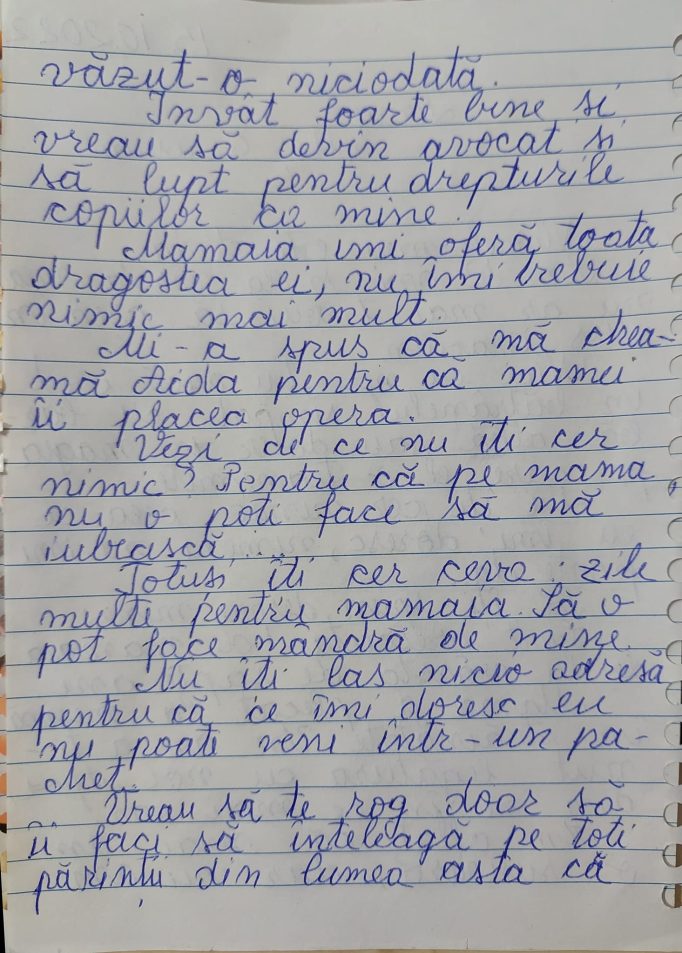 văzut-o niciodată.
Învăt foarte bine si
vreau să devin avocat si
să lupt pentru drepturile
copiilor ca mine.
Mamaia imi oferă toata
dragostea ei, nu îmi trebuie
nimic mai mult.
Mi-a spus că mă chea-
mă Aida pentru că mamei
îi placea opera.
Vezi de ce nu îti cer
nimic? Pentru că pe mama
nu o poti face să mă
iubrască....
Totusi îti cer ceva: zile
multe pentru mamaia. Să o
pot face mândră de mine.
Nu îti las nicio adresă
pentru că ce îmi doresc eu
nu poate veni într-un pa-
chet..
Vreau să te rog doar să
îi faci să inteleagă pe toti
părintii din lumea asta că